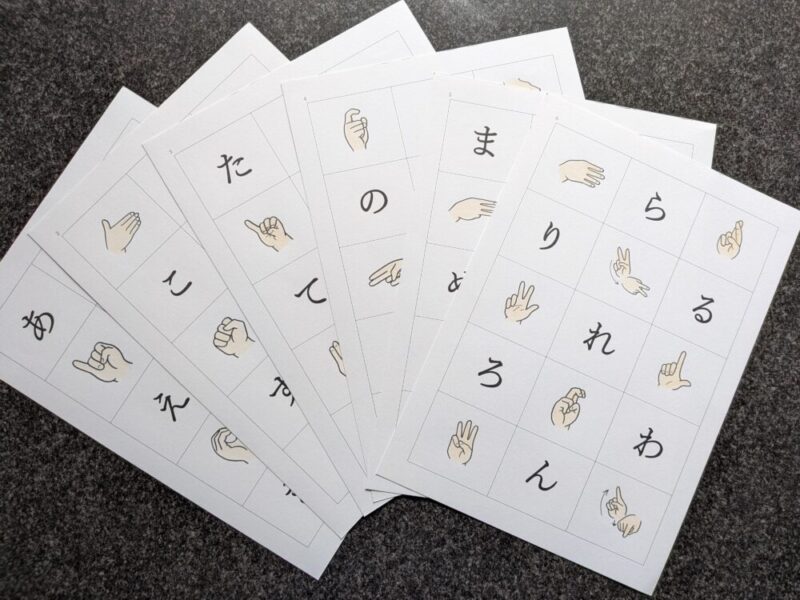 あ
え
こ
た
て
の
ま
ら
り る
れ
ろ わ
ん